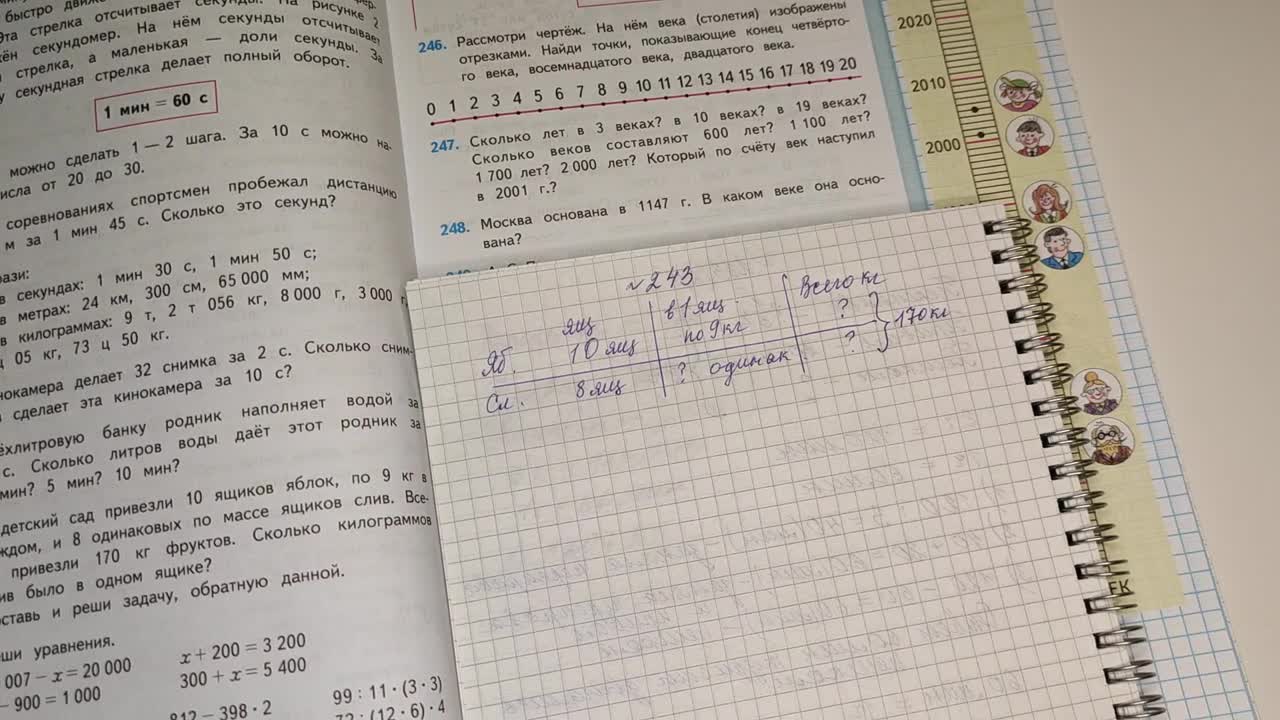 быстро
Эта стрелка отсчитывает секунды. На рисунке 2
секундомер. На нём секунды отсчитывает
стрелка, а маленькая — доли секунды. За
секундная стрелка делает полный оборот.
1 мин = 60 с
можно сделать 1 — 2 шага. За 10 с можно на-
числа от 20 до 30.
соревнованиях спортсмен пробежал дистанцию
м за 1 мин 45 с. Сколько это секунд?
в секундах: 1 мин 30 с, 1 мин 50 с;
в метрах: 24 км, 300 см, 65 000 мм;
в килограммах: 9 т, 2 т 056 кг, 8 000 г, 3 000 г
ц 05 кг, 73 ц 50 кг.
нокамера делает 32 снимка за 2 с. Сколько сним-
сделает эта кинокамера за 10 с?
ёхлитровую банку родник наполняет водой за
с. Сколько литров воды даёт этот родник за
мин? 5 мин? 10 мин?
детский сад привезли 10 ящиков яблок, по 9 кг в
ждом, и 8 одинаковых по массе ящиков слив. Все-
привезли 170 кг фруктов. Сколько килограммов
ив было в одном ящике?
оставь и реши задачу, обратную данной.
ши уравнения.
007 − x = 20 000
x + 200 = 3 200
− 900 = 1 000
300 + x = 5 400
812 − 398 · 2
99 : 11 · (3 · 3)
72 : (12 · 6) · 4
246. Рассмотри чертёж. На нём века (столетия) изображены
отрезками. Найди точки, показывающие конец четвёрто-
го века, восемнадцатого века, двадцатого века.
0 1 2 3 4 5 6 7 8 9 10 11 12 13 14 15 16 17 18 19 20
247. Сколько лет в 3 веках? в 10 веках? в 19 веках?
Сколько веков составляют 600 лет? 1 100 лет?
1 700 лет? 2 000 лет? Который по счёту век наступил
в 2001 г.?
248. Москва основана в 1147 г. В каком веке она осно-
вана?
2020
2010
2000
ЕК
№243
ящ в 1 ящ. Всего кг
Яб. 10 ящ по 9 кг ? } 170 кг
Сл. 8 ящ ? одинак ?